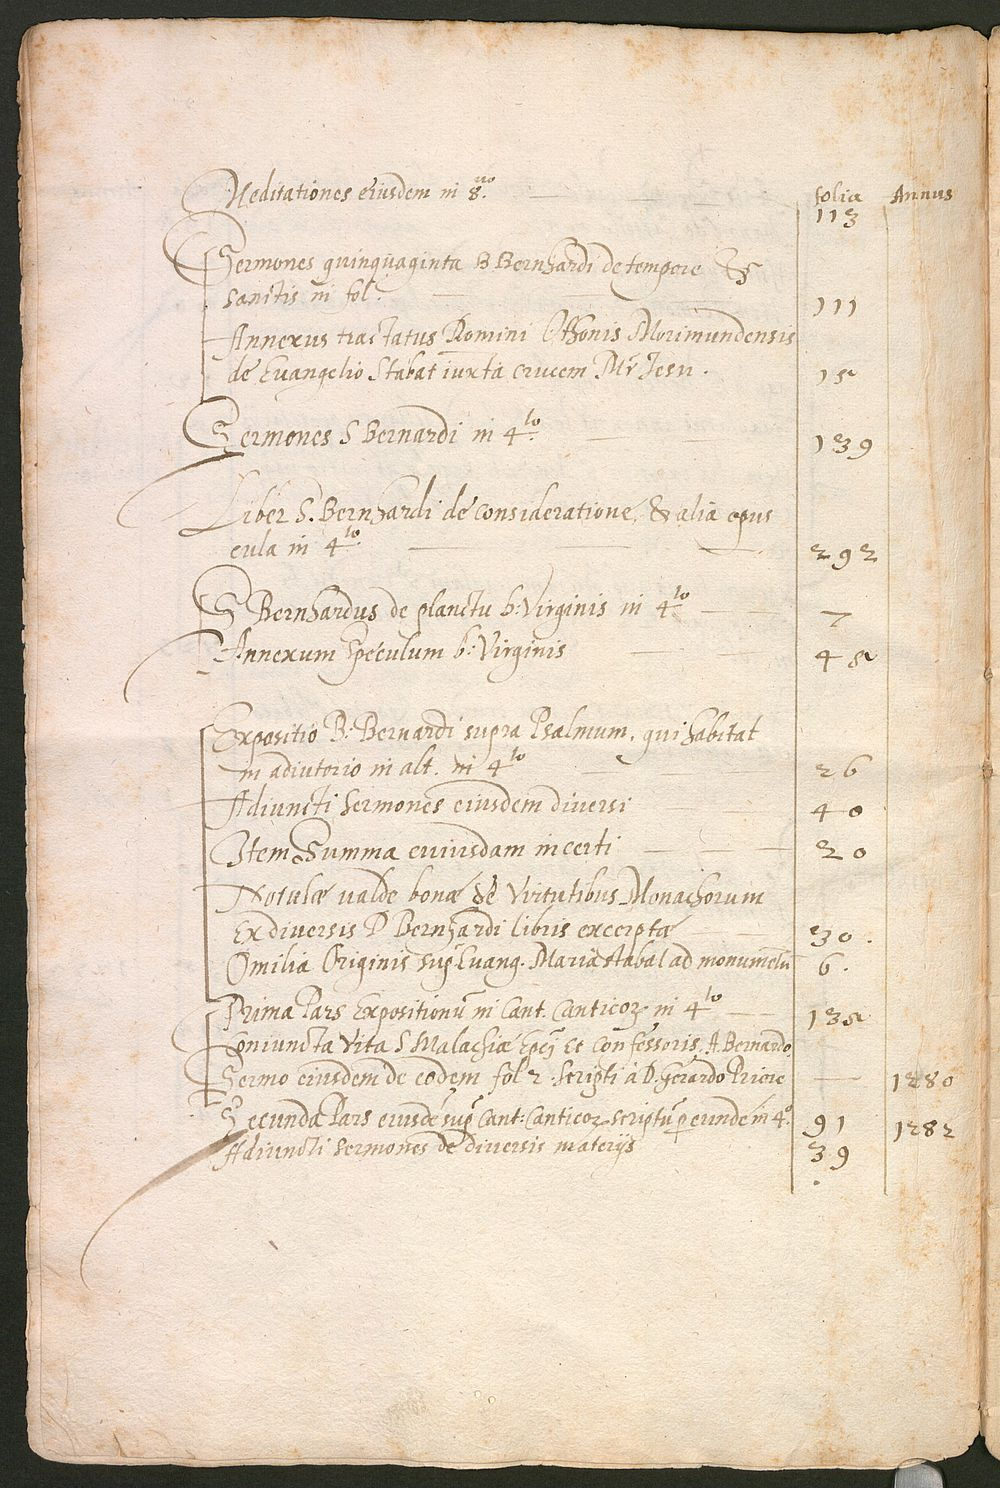 folia Annus
Meditationes eiusdem in 8.uo 113
Sermones quinquaginta B Bernhardi de tempore &
sanctis in fol. 111
Annexus tractatus Domini Ottonis Morimundensis
de Evangelio Stabat iuxta crucem Mr Jesu. 15
Sermones S Bernardi in 4.to 139
Liber S. Bernhardi de consideratione, & alia opus
cula in 4.to 292
S Bernhardus de planctu b: Virginis in 4.to 7
Annexum Speculum b: Virginis 45
Expositio B: Bernardi supra Psalmum. qui habitat
in adiutorio in alt. in 4to 26
Adiuncti Sermones eiusdem diversi 40
Item Summa cuiusdam incerti 20
Notulæ valde bonæ de Virtutibus Monachorum
Ex diversis D Bernhardi libris excerptæ 30.
Omilia Originis sup Euang. Maria stabat ad monumētū 6.
Prima Pars Expositionū in Cant. Canticoꝝ in 4to 135
Coniuncta Vita S Malachiæ Epi et Confessoris. A Bernardo
Sermo eiusdem de eodem fol 2. scripti à D. Gerardo Priore 1280
Secunda Pars eiusdē sup Cant: Canticoꝝ scriptū p eundē in 4.o 91 1282
Adiuncti Sermones de diversis materijs 39